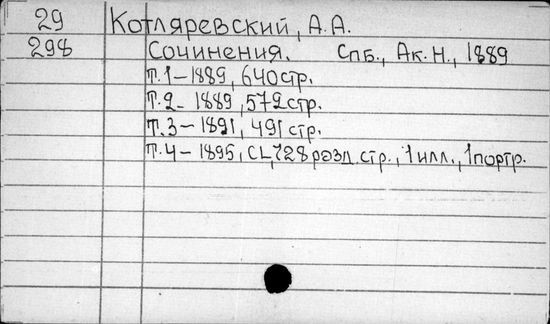 29 Котляревский, А.А.
298 Сочинения. Спб., Ак.Н., 1889
Т.1–1889, 640стр.
Т.2– 1889, 572стр.
Т.3–1891, 491стр.
Т.4–1895, CL,728разд.стр., 1илл., 1портр.